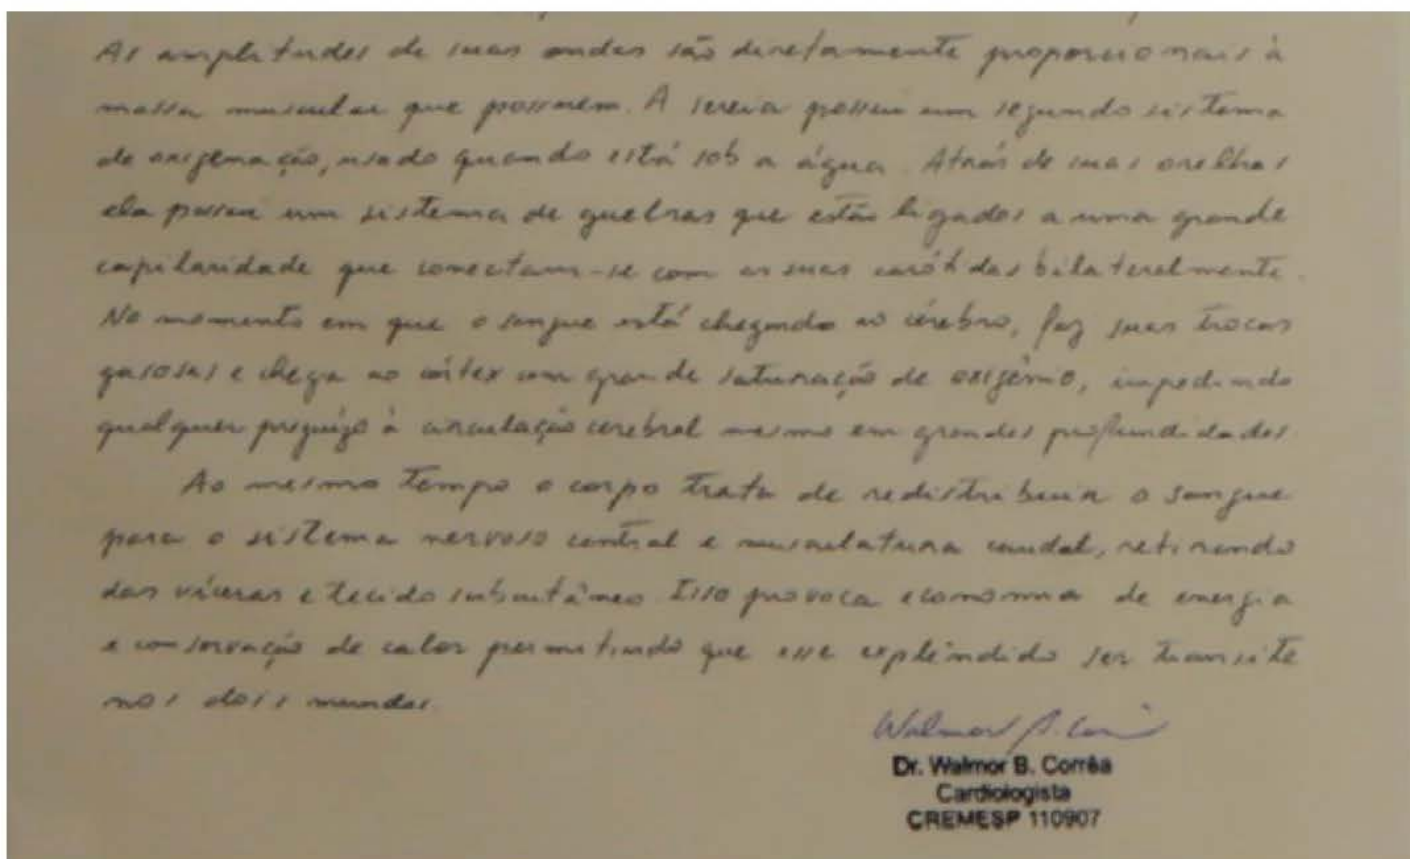 As amplitudes de suas ondas são diretamente proporcionais à
massa muscular que possuem. A sereia possui um segundo sistema
de oxigenação, usado quando está sob a água. Atrás de suas orelhas
ela possui um sistema de guelras que estão ligados a uma grande
capilaridade que conectam-se com as suas carótidas bilateralmente.
No momento em que o sangue está chegando ao cérebro, faz suas trocas
gasosas e chega ao córtex com grande saturação de oxigênio, impedindo
qualquer prejuízo à circulação cerebral mesmo em grandes profundidades.
Ao mesmo tempo o corpo trata de redistribuir o sangue
para o sistema nervoso central e musculatura caudal, retirando
das víceras e tecido subcutâneo. Isso provoca economia de energia
e conservação de calor permitindo que esse esplêndido ser transite
nos dois mundos.
Walmor B. Corrêa
Dr. Walmor B. Corrêa
Cardiologista
CREMESP 110907